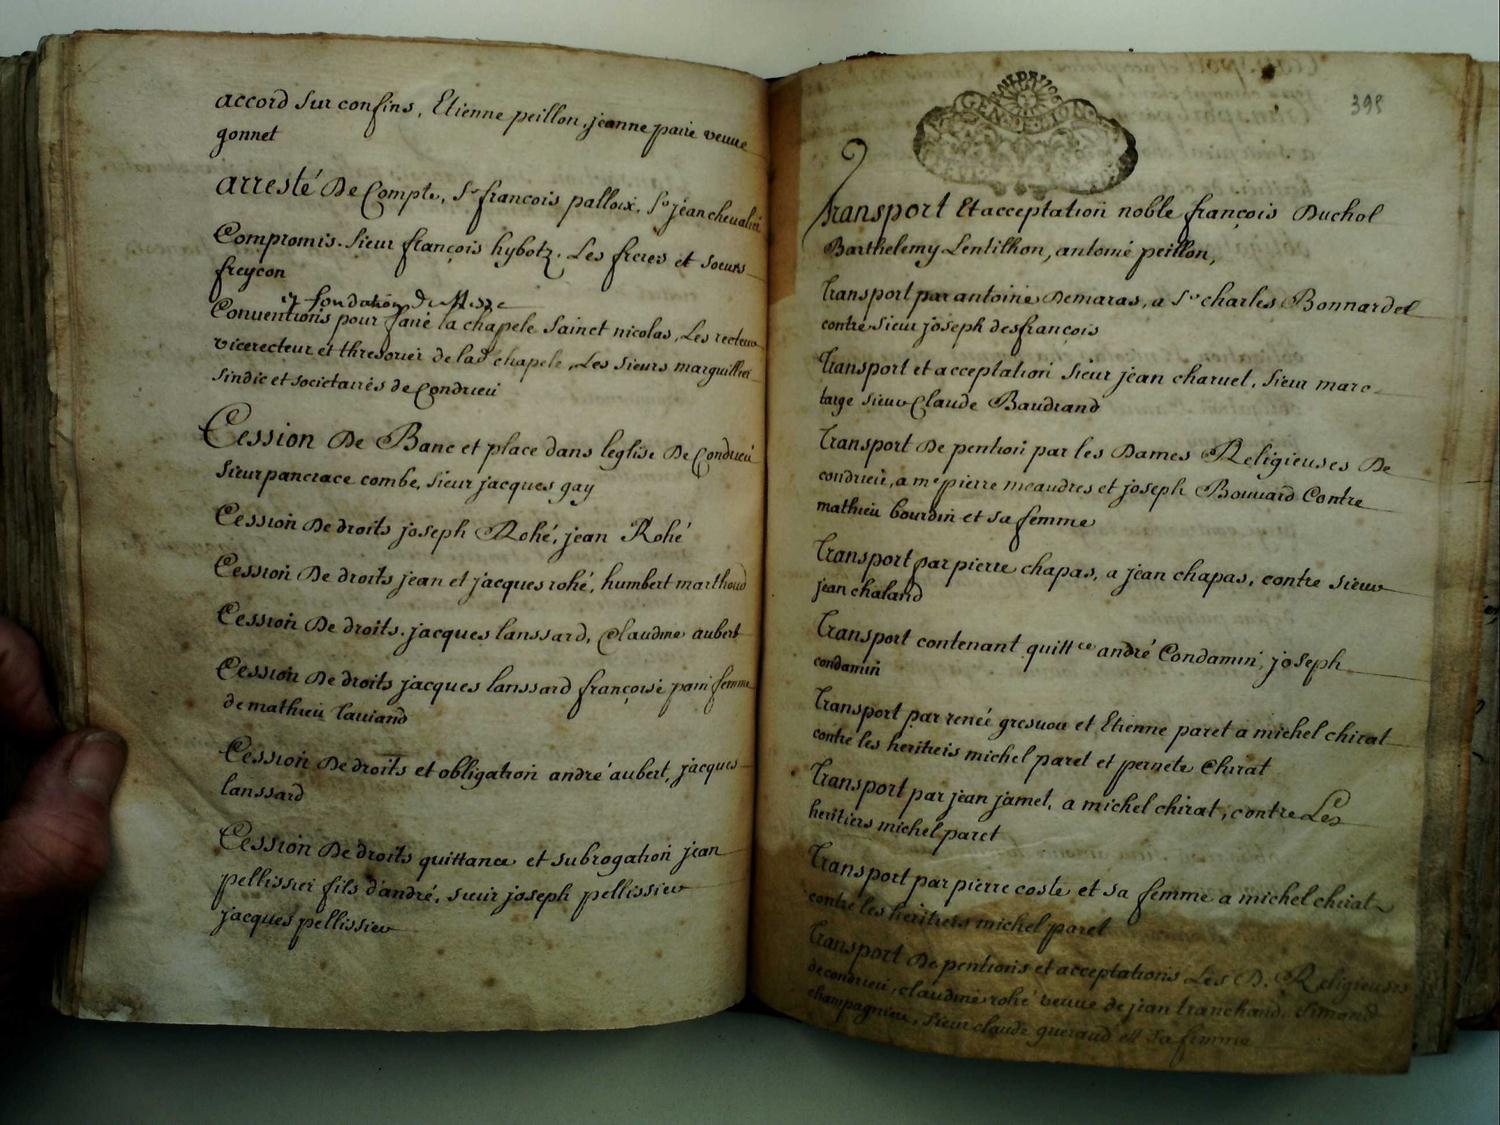 accord sur confins, Etienne peillon, jeanne paire veuve
gonnet
arresté De Compte, Sr francois palloix, Sr jean chevalier
Compromis. sieur françois hybotz. Les freres et soeurs
freycon
et fondation de Messe
Conventions pour faire la chapele sainct nicolas, Les recteur
vicerecteur et thresorier de lad chapele, Les sieurs marguillier
sindic et societaires de Condrieu
Cession De Banc et place dans leglise De Condrieu
sieur pancrace combe, sieur jacques gay
Cession De droits joseph Rohé, jean Rohé
Cession De droits jean et jacques rohé, humbert marthoud
Cession De droits. jacques lanssard, Claudine aubert
Cession De droits jacques lanssard françoise femme
de mathieu
Cession De droits et obligation andré aubert, jacques
lanssard
Cession De droits quittance et subrogation jean
pellissier fils d'andré, sieur joseph pellissier
jacques pellissier
398
Transport Et acceptation noble françois Duchol
Barthelemy Lentilhon, antoine peillon,
Transport par antoine Demaras, a Sr charles Bonnardel
contre sieur joseph desfrançois
Transport et acceptation sieur jean charvet, sieur marc
targe sieur Claude Baudrand
Transport De pention par les Dames Religieuses De
condrieu, a me pierre meaudres et joseph Bouvard Contre
mathieu bourdin et sa femme
Transport par pierre chapas, a jean chapas, contre sieur
jean chaland
Transport contenant quittce andré Condamin, joseph
condamin
Transport par renée gresvou et Etienne paret a michel chirat
contre les heritiers michel paret et pernete Chirat
Transport par jean jamet, a michel chirat, contre Les
heritiers michel paret
Transport par pierre coste et sa femme a michel chirat
contre les heritiers michel paret
Transport De pentions et acceptations Les D. Religieuses
de condrieu, claudine rohé veuve de jean tranchand, simond
champagnieu, sieur claude gueraud et sa femme